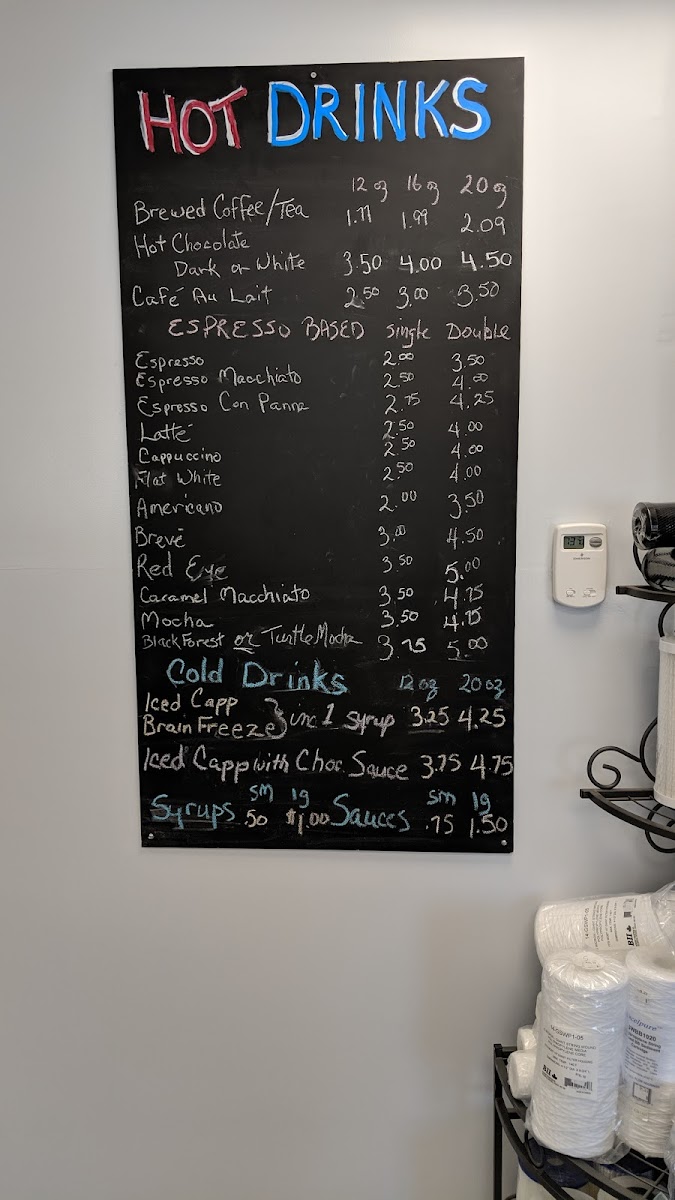 HOT DRINKS
12 oz 16 oz 20 oz
Brewed Coffee/Tea 1.79 1.99 2.09
Hot Chocolate
Dark or White 3.50 4.00 4.50
Café Au Lait 2.50 3.00 3.50
ESPRESSO BASED Single Double
Espresso 2.00 3.50
Espresso Macchiato 2.50 4.00
Espresso Con Panna 2.75 4.25
Latté 2.50 4.00
Cappuccino 2.50 4.00
Flat White 2.50 4.00
Americano 2.00 3.50
Brevé 3.00 4.50
Red Eye 3.50 5.00
Caramel Macchiato 3.50 4.75
Mocha 3.50 4.75
Black Forest or Turtle Mocha 3.75 5.00
Cold Drinks 12 oz 20 oz
Iced Capp
Brain Freeze } inc 1 syrup 3.25 4.25
Iced Capp with Choc Sauce 3.75 4.75
sm lg sm lg
Syrups .50 $1.00 Sauces .75 1.50
BII
BII